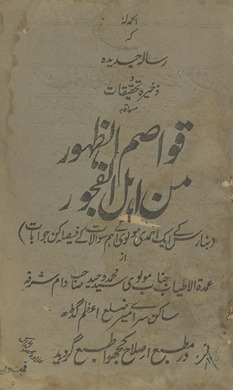 الحمد للہ
کہ
رسالہ جدیدہ
و
ذخیرہ تحقیقات
مسماۃ بہ
قواصم الظہور
من اہل الفجور
(بنارس کے ایک احمدی مولوی کے اہم سوالات کے فیصلہ کن جوابات)
از
عمدۃ الاطیاب جناب مولوی محمد وحید صاحب دام شرفہ
ساکن سرائے میر ضلع اعظم گڈھ
در مطبع اصلاح کھجوا طبع گردید